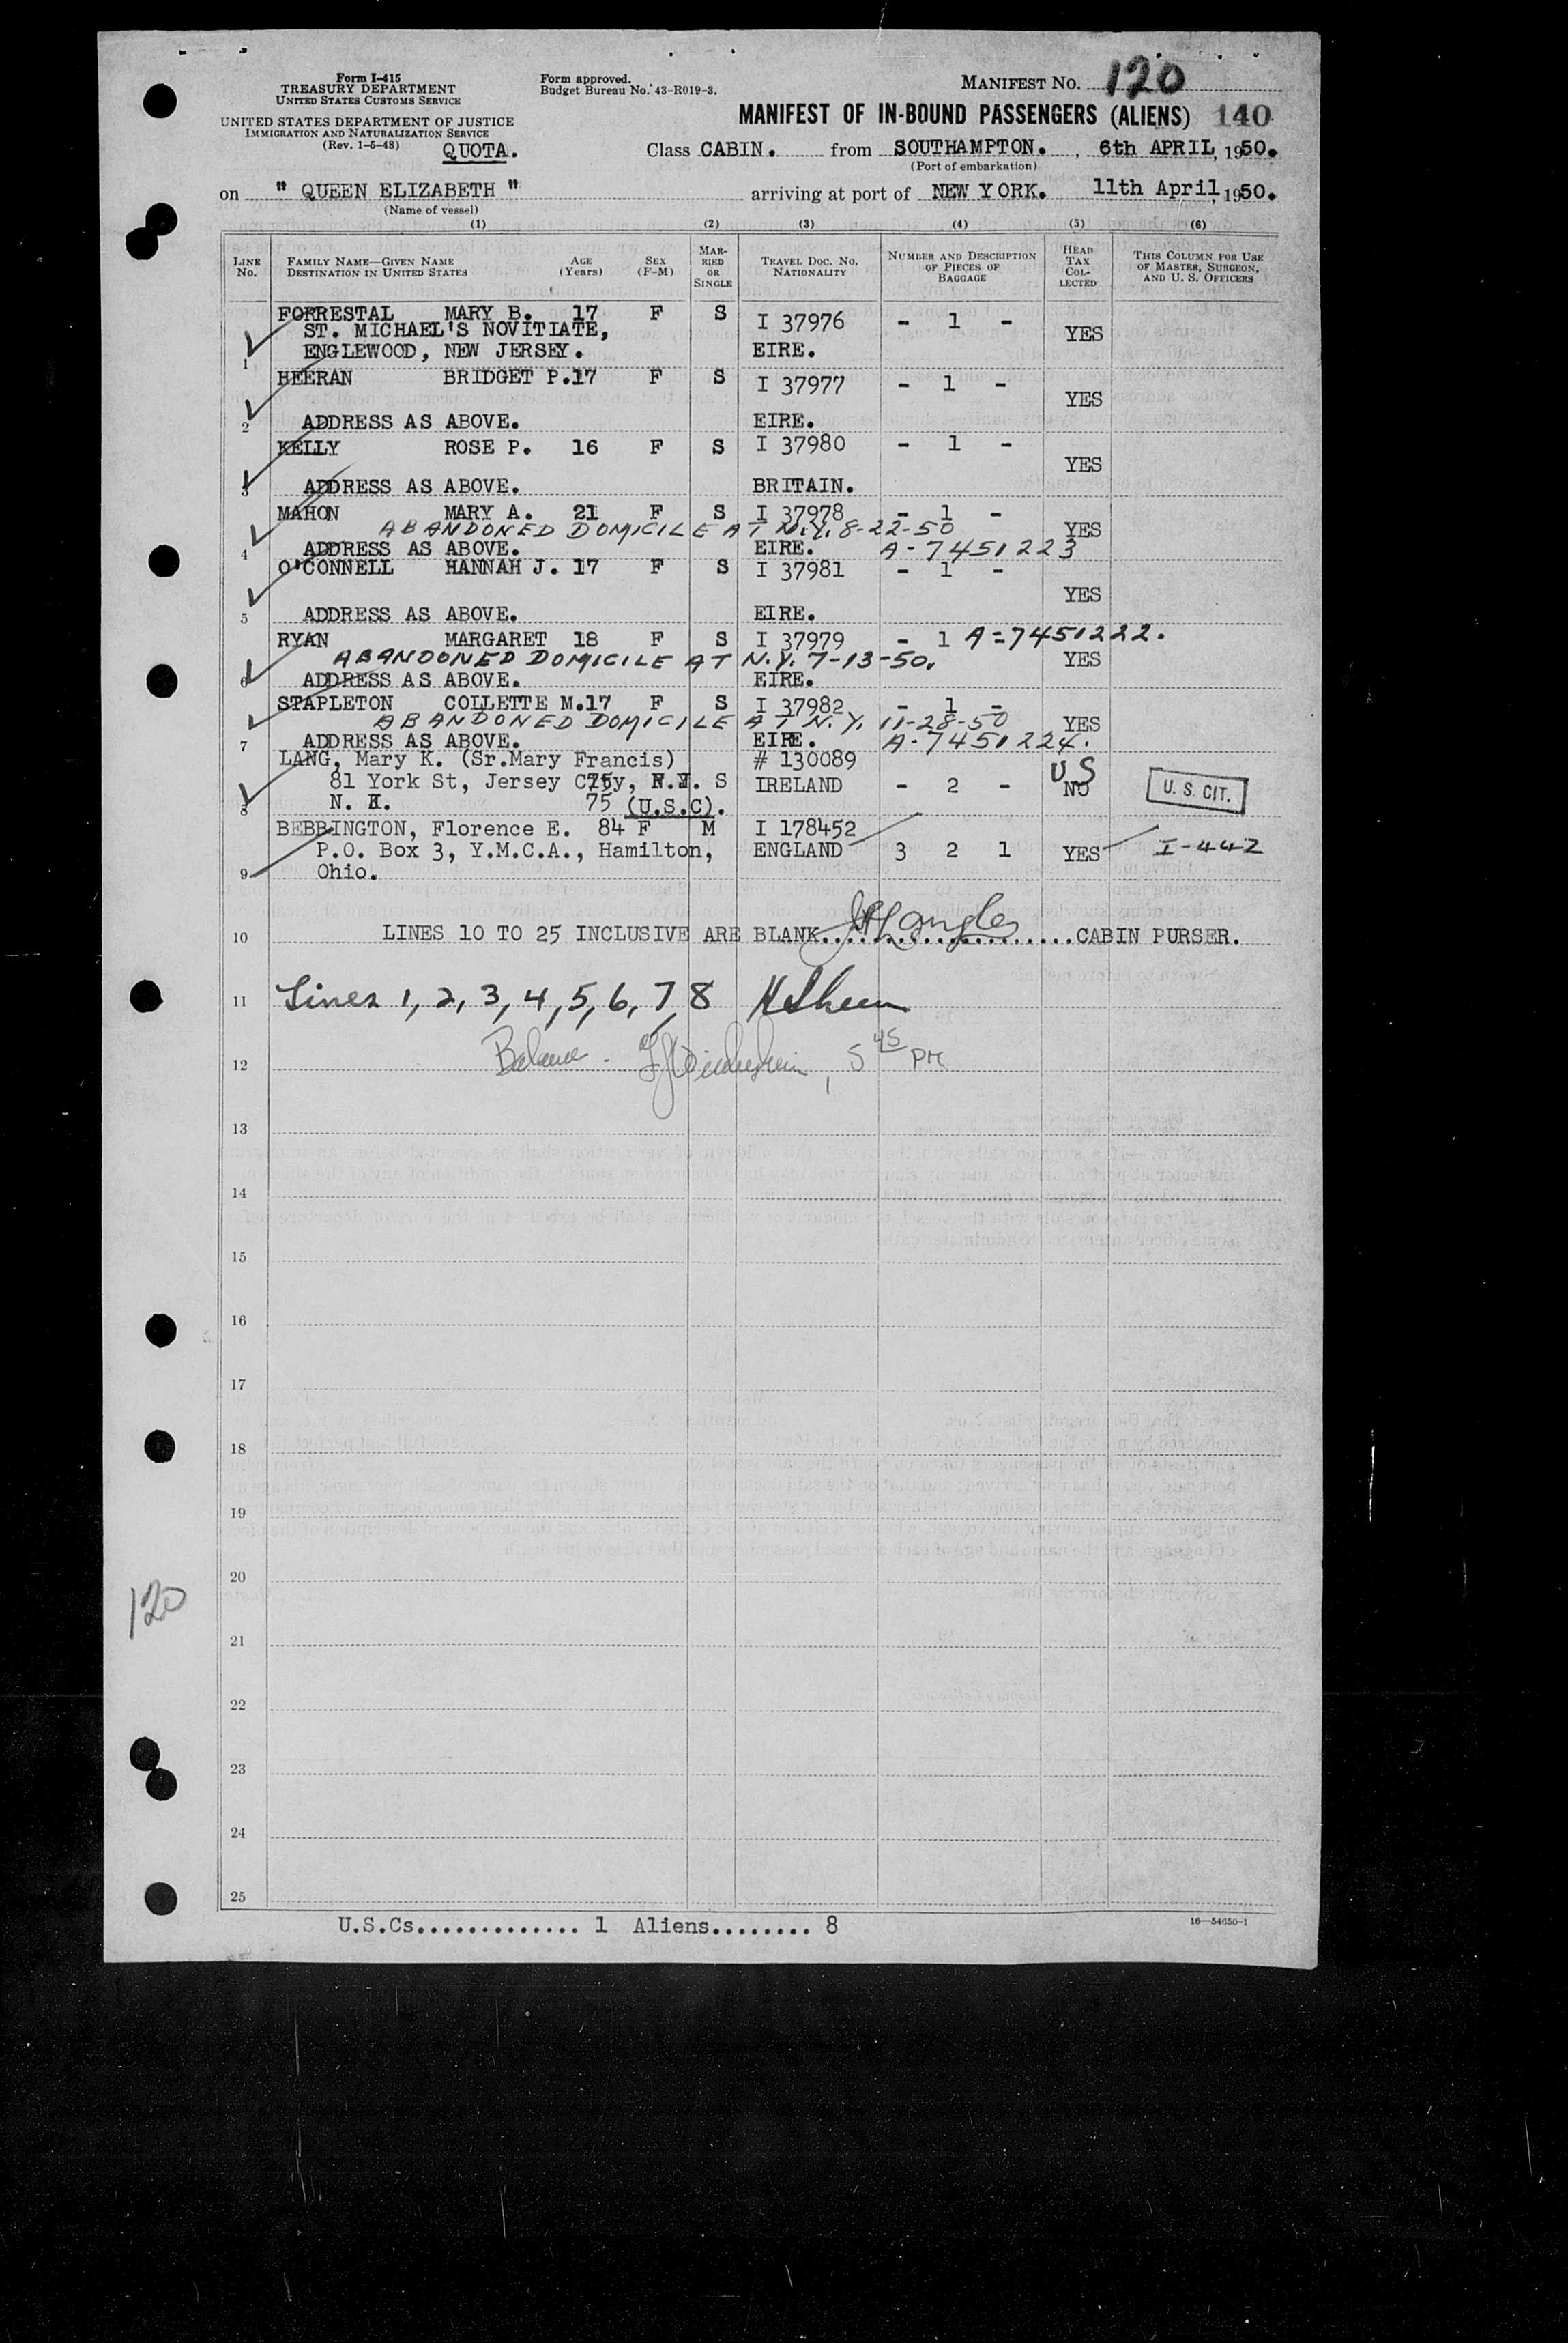 Form I-415
TREASURY DEPARTMENT
UNITED STATES CUSTOMS SERVICE
UNITED STATES DEPARTMENT OF JUSTICE
IMMIGRATION AND NATURALIZATION SERVICE
(Rev. 1-6-48)
QUOTA.
Form approved.
Budget Bureau No. 43-R019-3.
MANIFEST NO. 120
MANIFEST OF IN-BOUND PASSENGERS (ALIENS) 140
Class CABIN. from SOUTHAMPTON. , 6th APRIL, 1950.
(Port of embarkation)
on " QUEEN ELIZABETH " arriving at port of NEW YORK. 11th April, 1950.
(Name of vessel)
(1) (2) (3) (4) (5) (6)
LINE No. FAMILY NAME—GIVEN NAME DESTINATION IN UNITED STATES AGE (Years) SEX (F-M) MARRIED OR SINGLE TRAVEL DOC. NO. NATIONALITY NUMBER AND DESCRIPTION OF PIECES OF BAGGAGE HEAD TAX COLLECTED THIS COLUMN FOR USE OF MASTER, SURGEON, AND U. S. OFFICERS
FORRESTAL MARY B. 17 F S I 37976 - 1 - YES
ST. MICHAEL'S NOVITIATE,
1 ENGLEWOOD, NEW JERSEY. EIRE.
HEERAN BRIDGET P. 17 F S I 37977 - 1 - YES
2 ADDRESS AS ABOVE. EIRE.
KELLY ROSE P. 16 F S I 37980 - 1 - YES
3 ADDRESS AS ABOVE. BRITAIN.
MAHON MARY A. 21 F S I 37978 - 1 - YES
ABANDONED DOMICILE AT N.Y. 8-22-50
4 ADDRESS AS ABOVE. EIRE. A-7451223
O'CONNELL HANNAH J. 17 F S I 37981 - 1 - YES
5 ADDRESS AS ABOVE. EIRE.
RYAN MARGARET 18 F S I 37979 - 1 A=7451222.
ABANDONED DOMICILE AT N.Y. 7-13-50. YES
6 ADDRESS AS ABOVE. EIRE.
STAPLETON COLLETTE M. 17 F S I 37982 - 1 -
ABANDONED DOMICILE AT N.Y. 11-28-50 YES
7 ADDRESS AS ABOVE. EIRE. A-7451224.
LANG, Mary K. (Sr.Mary Francis) # 130089 US
81 York St, Jersey City, N.J. S IRELAND - 2 - NO U. S. CIT.
8 N. J. 75 (U.S.C).
BEBBINGTON, Florence E. 84 F M I 178452
P.O. Box 3, Y.M.C.A., Hamilton, ENGLAND 3 2 1 YES I-442
9 Ohio.
10 LINES 10 TO 25 INCLUSIVE ARE BLANK....................CABIN PURSER.
11 Lines 1, 2, 3, 4, 5, 6, 7, 8
12 Balance - 5 45 PM
13
14
15
16
17
18
19
20
120
21
22
23
24
25
U.S.Cs............. 1 Aliens........ 8
16—54650-1